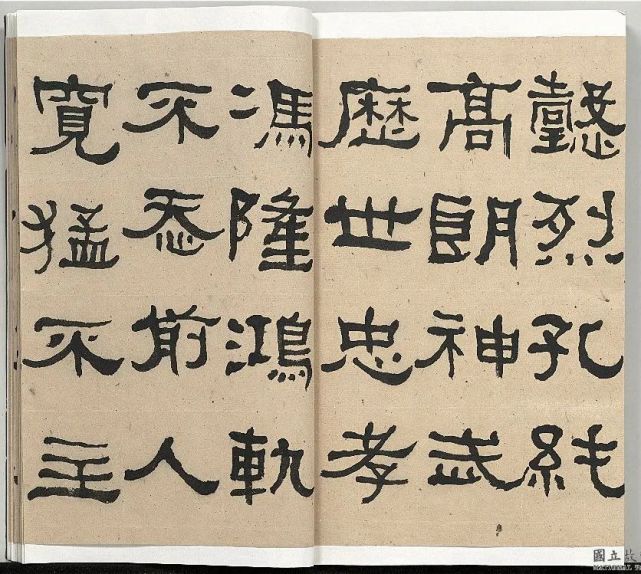 懿烈孔純
高朗神武
歷世忠孝
馮隆鴻軌
不忝前人
寬猛不主
國立故